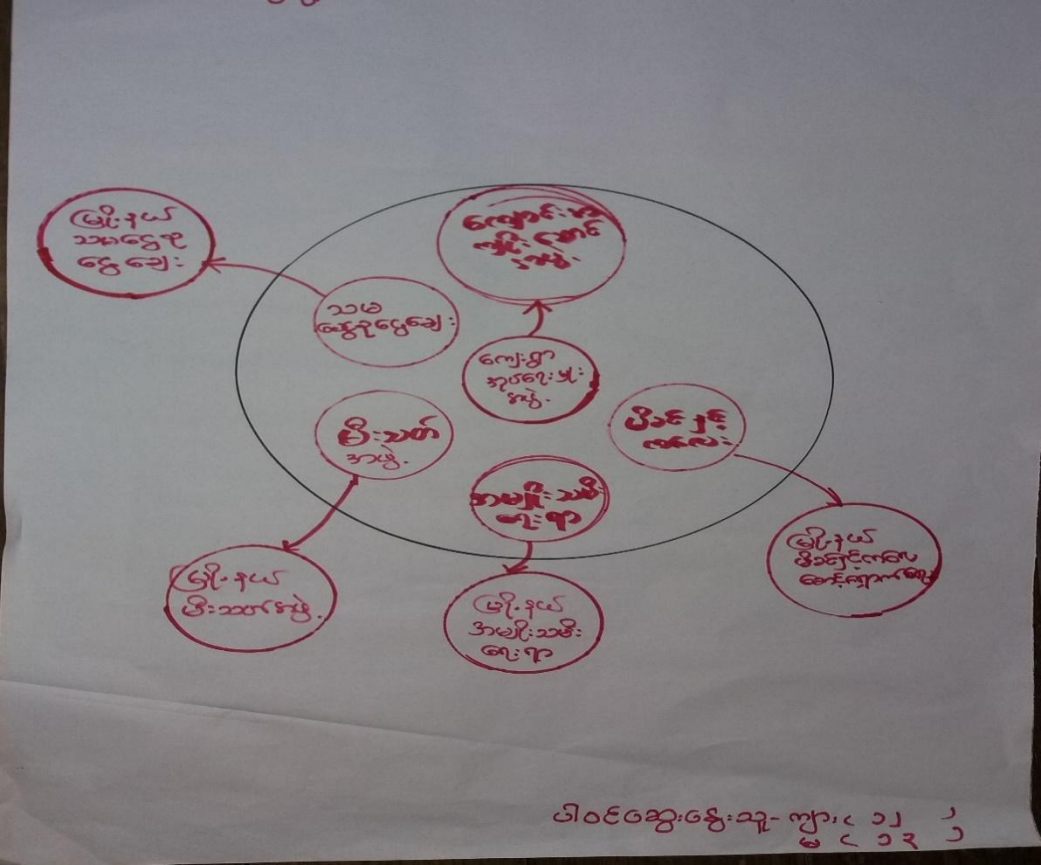 မြို့နယ်
သမငွေစု
ငွေချေး
ကျောင်းအ
ကျိုးဆောင်
အဖွဲ့
သမ
ငွေစုငွေချေး
ကျေးရွာ
အုပ်ရေးမှူး
အဖွဲ့
မီးသတ်
အဖွဲ့
မိခင်နှင့်
ကလေး
အမျိုးသမီး
ရေးရာ
မြို့နယ်
မီးသတ်အဖွဲ့
မြို့နယ်
အမျိုးသမီး
ရေးရာ
မြို့နယ်
မိခင်နှင့်ကလေး
စောင့်ရှောက်ရေး
ပါဝင်ဆွေးနွေးသူ - ကျား ( ၁၂ )
မ ( ၁၃ )